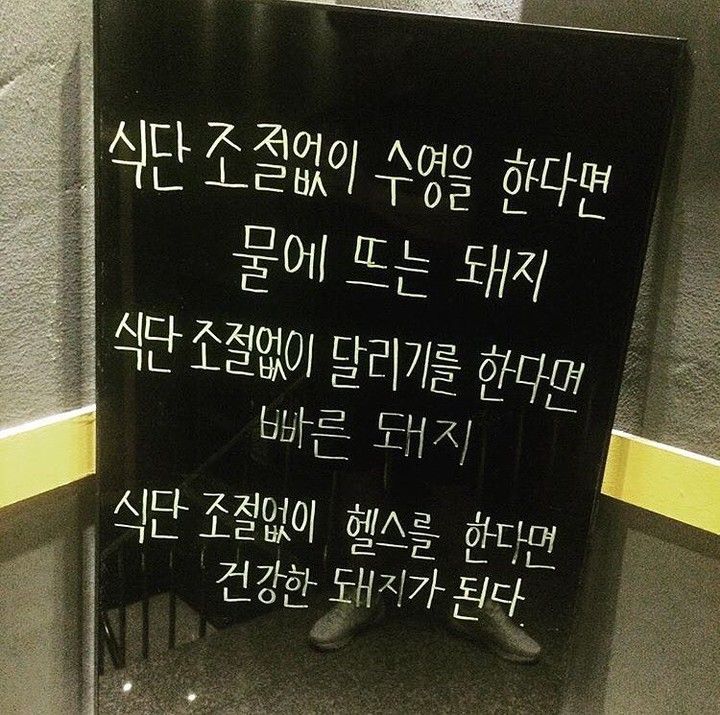 식단 조절없이 수영을 한다면
물에 뜨는 돼지
식단 조절없이 달리기를 한다면
빠른 돼지
식단 조절없이 헬스를 한다면
건강한 돼지가 된다.